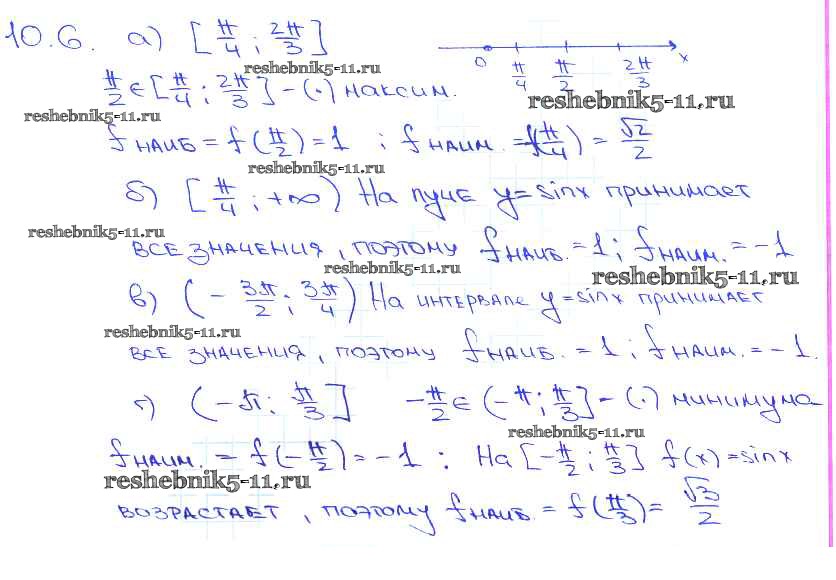 10.6. а) [π/4 ; 2π/3]
0 π/4 π/2 2π/3 x
reshebnik5-11.ru
π/2 ∈ [π/4 ; 2π/3] - (·) максим.
reshebnik5-11.ru
reshebnik5-11.ru
fнаиб = f(π/2) = 1 ; fнаим. = f(π/4) = √2/2
reshebnik5-11.ru
б) [π/4 ; +∞) На луче y = sinx принимает
reshebnik5-11.ru
все значения, поэтому fнаиб. = 1 ; fнаим. = -1
reshebnik5-11.ru
reshebnik5-11.ru
в) (- 3π/2 ; 3π/4) На интервале y = sinx принимает
reshebnik5-11.ru
все значения, поэтому fнаиб. = 1 ; fнаим. = -1.
г) (-π ; π/3] -π/2 ∈ (-π ; π/3] - (·) минимума
reshebnik5-11.ru
fнаим. = f(-π/2) = -1 ; На [-π/2 ; π/3] f(x) = sinx
reshebnik5-11.ru
возрастает, поэтому fнаиб. = f(π/3) = √3/2